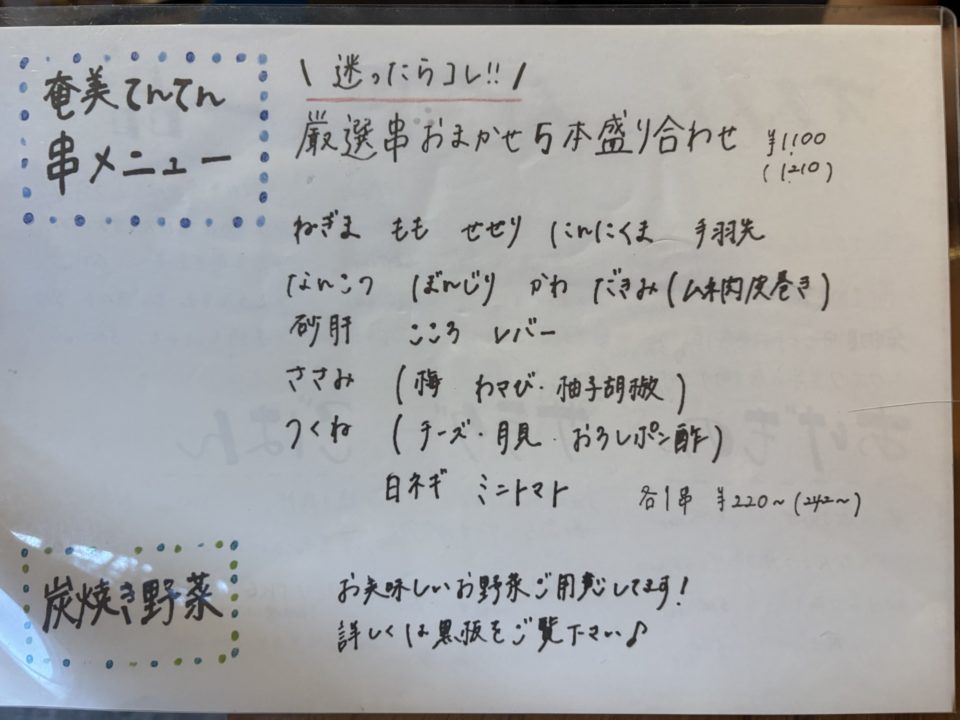 奄美てんてん
串メニュー
\ 迷ったらコレ!! /
厳選串おまかせ5本盛り合わせ ¥1,100
(1,210)
ねぎま もも せせり にんにくま 手羽先
なんこつ ぼんじり かわ だきみ(ムネ肉皮巻き)
砂肝 こころ レバー
ささみ (梅 わさび・柚子胡椒)
つくね (チーズ・月見・おろしポン酢)
白ネギ ミニトマト 各1串 ¥220~(242~)
炭焼き野菜
お美味しいお野菜ご用意してます!
詳しくは黒板をご覧下さい♪